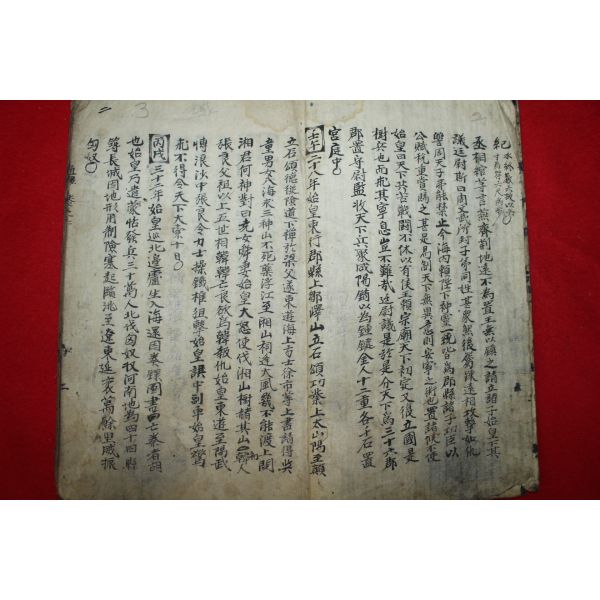 紀
丞相綰等言燕齊荊地遠不為置王無以鎮之請立諸子始皇下其
議廷尉斯曰周文武所封子弟同姓甚衆然後屬疎遠相攻擊如仇
讐周天子不能禁止今海內賴陛下神靈一統皆為郡縣諸子功臣以
公賦稅重賞賜之甚足易制天下無異意則安寧之術也置諸侯不便
始皇曰天下共苦戰鬪不休以有侯王賴宗廟天下初定又復立國是
樹兵也而求其寧息豈不難哉廷尉議是於是分天下為三十六郡
郡置守尉監收天下兵聚咸陽銷以為鍾鐻金人十二重各千石置
宮庭中
壬午 二十八年始皇東行郡縣上鄒嶧山立石頌功業上太山陽至顚
立石頌德從陰道下禪於梁父遂東遊海上方士徐市等上書請得與
童男女入海求三神山不死藥浮江至湘山祠逢大風幾不能渡上問
湘君何神對曰堯女舜妻始皇大怒使伐湘山樹赭其山初韓人
張良父祖以上五世相韓韓亡良欲為韓報仇始皇東遊至陽武
博浪沙中張良令力士操鐵椎狙擊始皇誤中副車始皇驚
求不得令天下大索十日
丙戌 三十二年始皇巡北邊盧生入海還因奏錄圖書曰亡秦者胡
也始皇乃遣蒙恬發兵三十萬人北伐匈奴收河南地為四十四縣
築長城因地形用制險塞起臨洮至遼東延袤萬餘里威振
匈奴